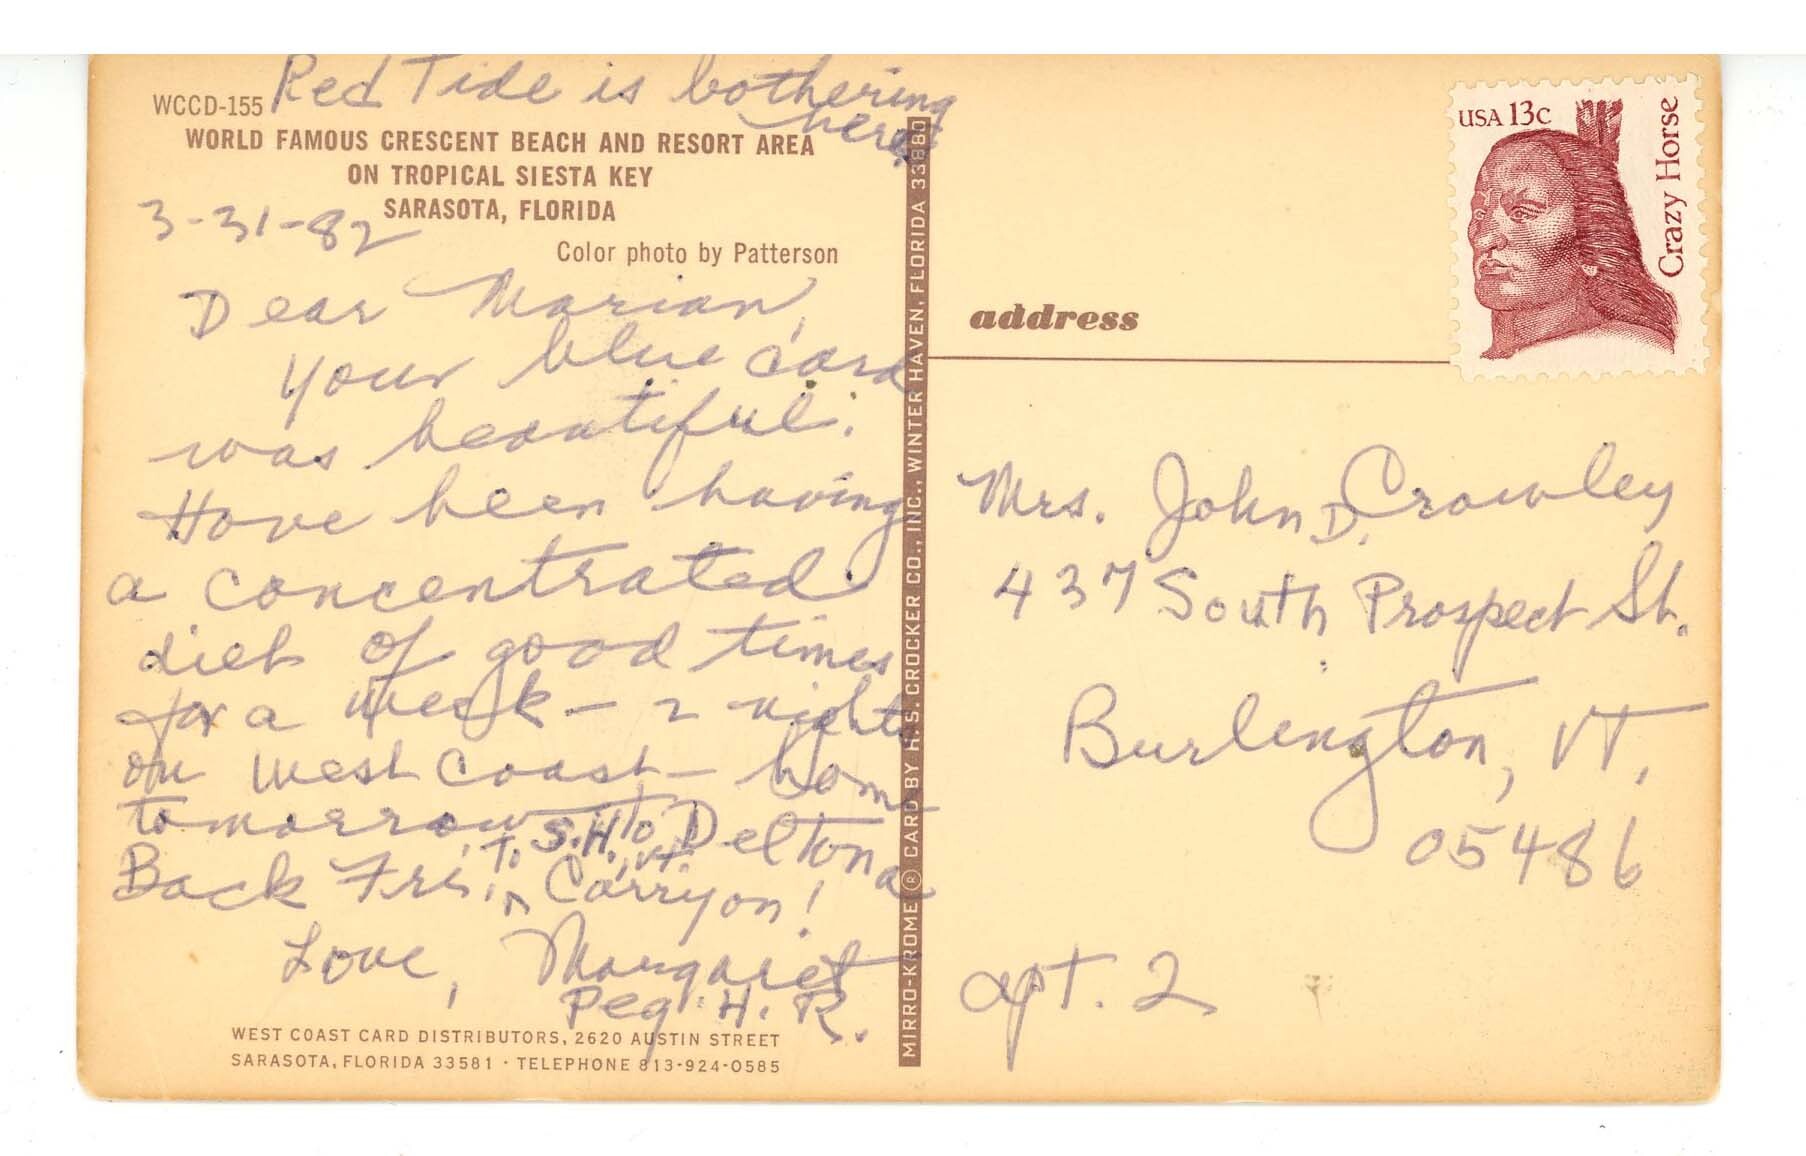 Red Tide is bothering
here!
WCCD-155
WORLD FAMOUS CRESCENT BEACH AND RESORT AREA
ON TROPICAL SIESTA KEY
SARASOTA, FLORIDA
Color photo by Patterson
3-31-82
Dear Marian,
your blue card
was beautiful.
Have been having
a concentrated
diet of good times
for a week - 2 nights
on West Coast - home
tomorrow to Deltona
Back Fri., Carry on!
T. S.H., Vt.
Love, Margaret
Peg H. R.
WEST COAST CARD DISTRIBUTORS, 2620 AUSTIN STREET
SARASOTA, FLORIDA 33581 · TELEPHONE 813-924-0585
MIRRO-KROME ® CARD BY H.S. CROCKER CO., INC., WINTER HAVEN, FLORIDA 33880
USA 13c
Crazy Horse
address
Mrs. John D. Crowley
437 South Prospect St.
Burlington, VT.
05486
apt. 2